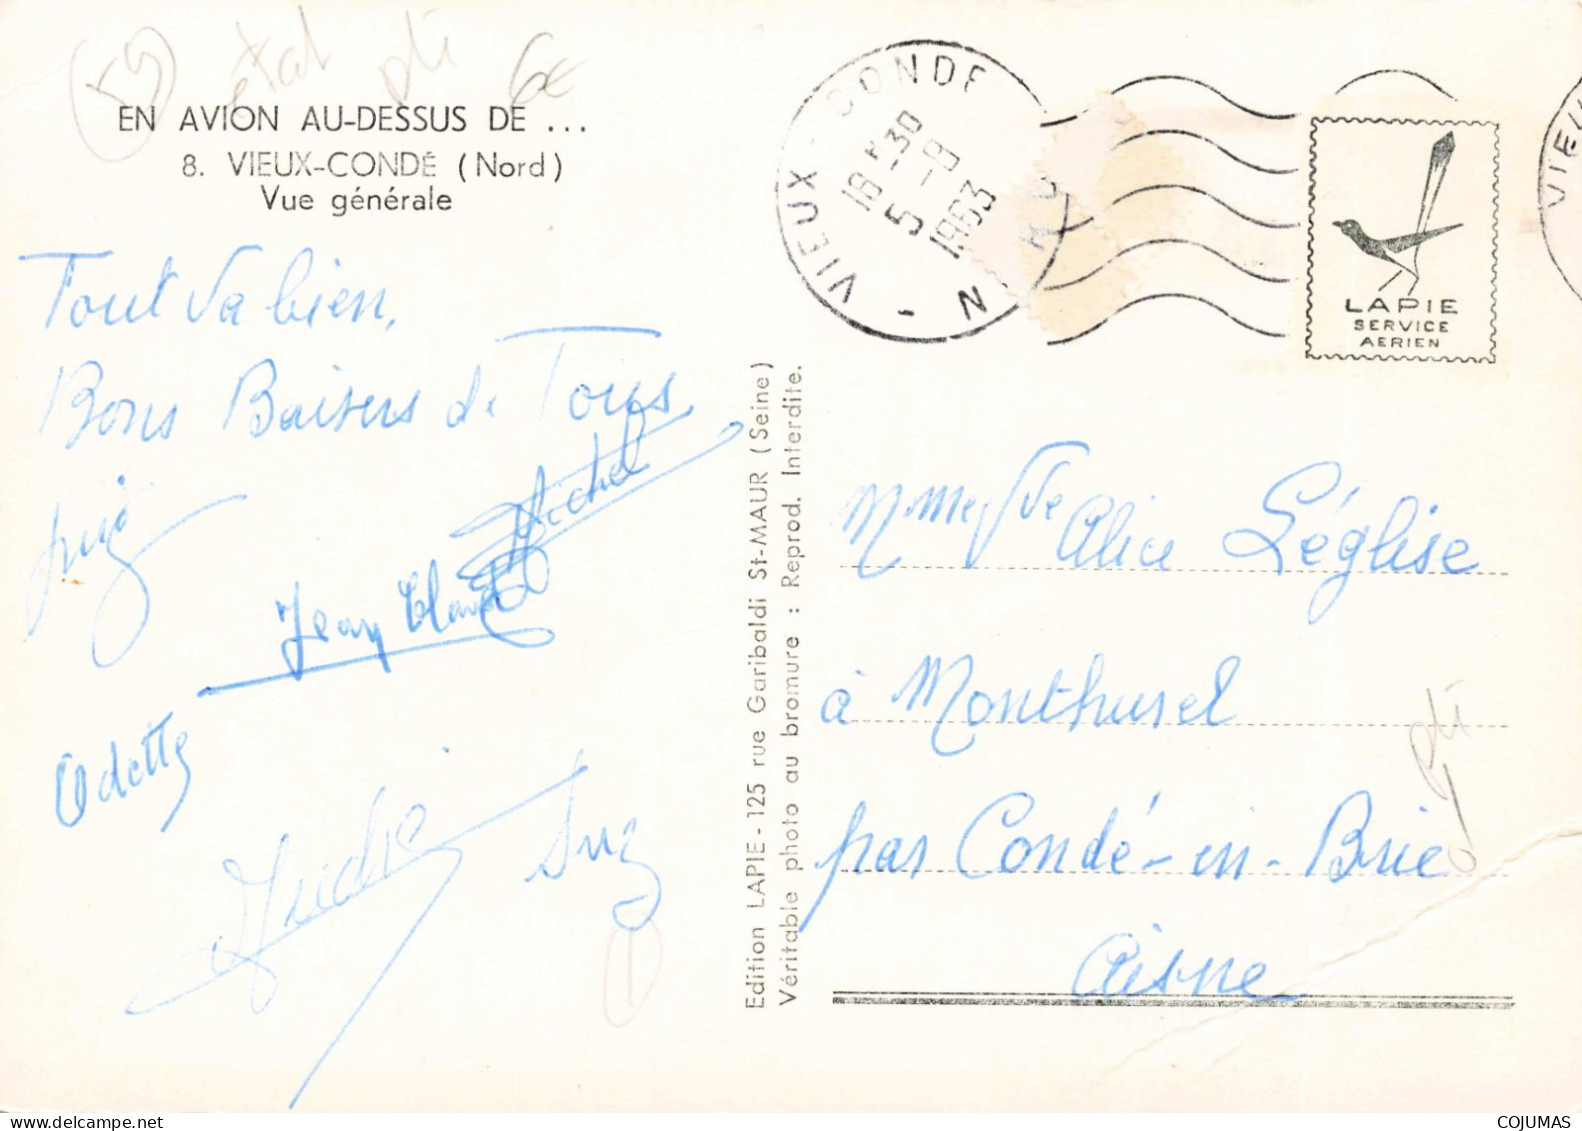 (59) état pli 6€
EN AVION AU-DESSUS DE ...
8. VIEUX-CONDÉ (Nord)
Vue générale
Tout va bien,
Bons Baisers de Tous
Michel
Jean Claude
Odette
Suz
Edition LAPIE - 125 rue Garibaldi St-MAUR (Seine)
Véritable photo au bromure : Reprod. Interdite.
VIEUX - CONDE
18 H 30
5 - 9
1963
NORD
LAPIE
SERVICE
AERIEN
VIEU
Mme Vve Alice Léglise
à Monthurel
pli
par Condé-en-Brie
Aisne
COJUMAS